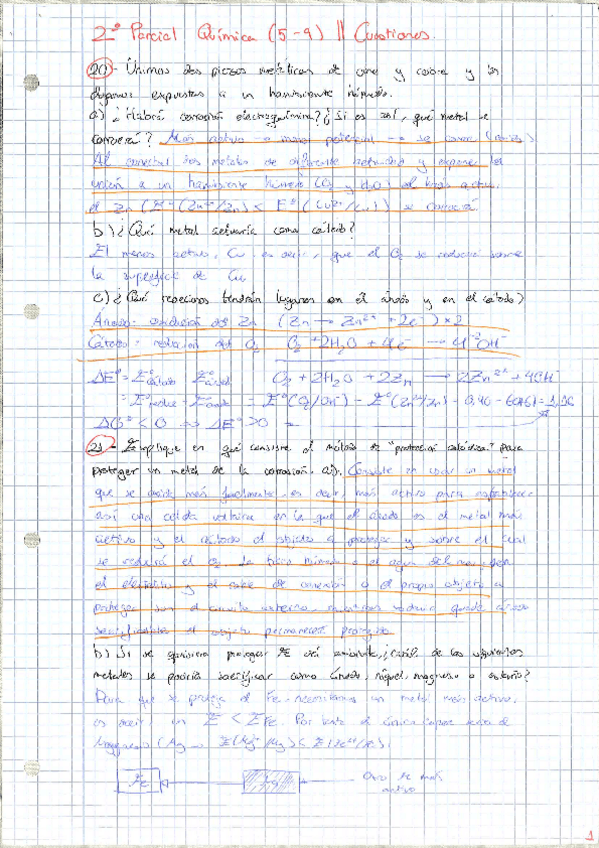 2º Parcial Química (5-9) || Cuestiones.
20.- Unimos dos piezas metálicas de cinc y cobre y las
dejamos expuestas a un ambiente húmedo.
a) ¿Habrá corrosión electroquímica? ¿Si es así, qué metal se
corroerá? Más activo → menor potencial → se corroe
Al conectar dos metales de diferente actividad y exponer la
unión a un ambiente húmedo (O2 y H2O) el más activo,
el Zn (Eº(Zn2+/Zn) < Eº(Cu2+/Cu)) se corroerá.
b) ¿Qué metal actuaría como cátodo?
El menos activo, Cu, es decir, que el O2 se reducirá sobre
la superficie de Cu.
c) ¿Qué reacciones tendrán lugar en el ánodo y en el cátodo?
Ánodo: oxidación del Zn (Zn → Zn2+ + 2e-) x2
Cátodo: reducción del O2 O2 + 2H2O + 4e- → 4OH-
ΔEº = Eºcátodo - Eºánodo O2 + 2H2O + 2Zn → 2Zn2+ + 4OH-
= Eº(O2/OH-) - Eº(Zn2+/Zn) = 0,40 -
ΔGº < 0 ⇒ ΔEº > 0
21.- Explique en qué consiste el método de "protección catódica" para
proteger un metal de la corrosión. a). Consiste en usar un metal
que se oxida más fácilmente, es decir, más activo para
así una celda voltaica en la que el ánodo es el metal más
activo y el cátodo el objeto a proteger y sobre el cual
se reducirá el O2. La tierra húmeda o el agua del mar son
el electrolito y el cable de conexión o el propio objeto a
proteger son el circuito externo, mientras quede ánodo
el objeto permanecerá protegido.
b) Si se quisiera proteger Fe ¿cuál de los siguientes
metales se podría sacrificar como ánodo, níquel, magnesio o estaño?
Para que se proteja el Fe necesitamos un metal más activo,
es decir, un E < E Fe. Por tanto el único capaz sería el
Magnesio (Mg → E(Mg2+/Mg) < E(Fe2+/Fe).
Fe
Mg
más
activo
1